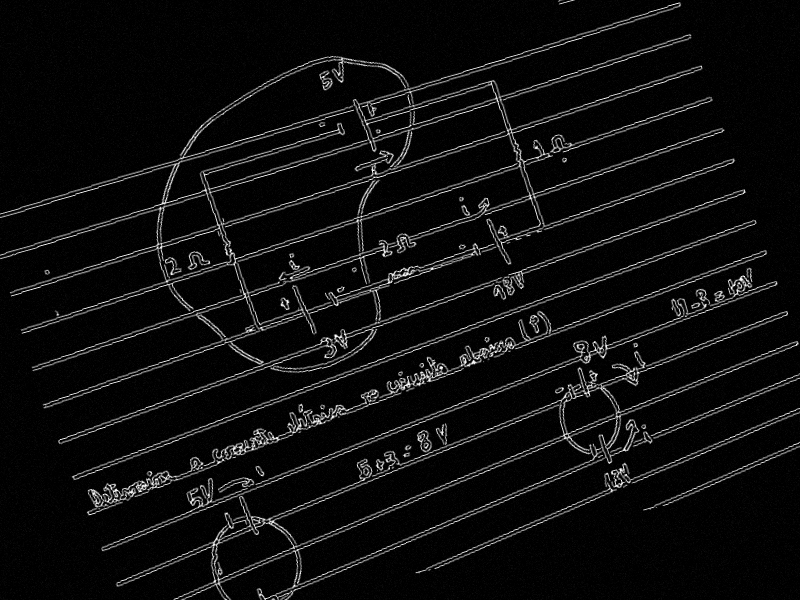 5V
+
-
1Ω
i
2Ω
i
2Ω
+
-
+
-
18V
3V
Determine a corrente elétrica no circuito abaixo (i)
8V
i
5+3=8V
5V
i
i
18V